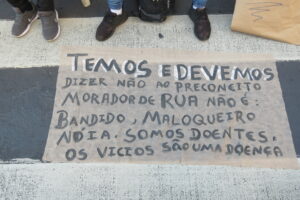 TEMOS E DEVEMOS
DIZER NÃO AO PRECONCEITO
MORADOR DE RUA NÃO É:
BANDIDO, MALOQUEIRO
NOIA. SOMOS DOENTES.
OS VICIOS SÃO UMA DOENÇA